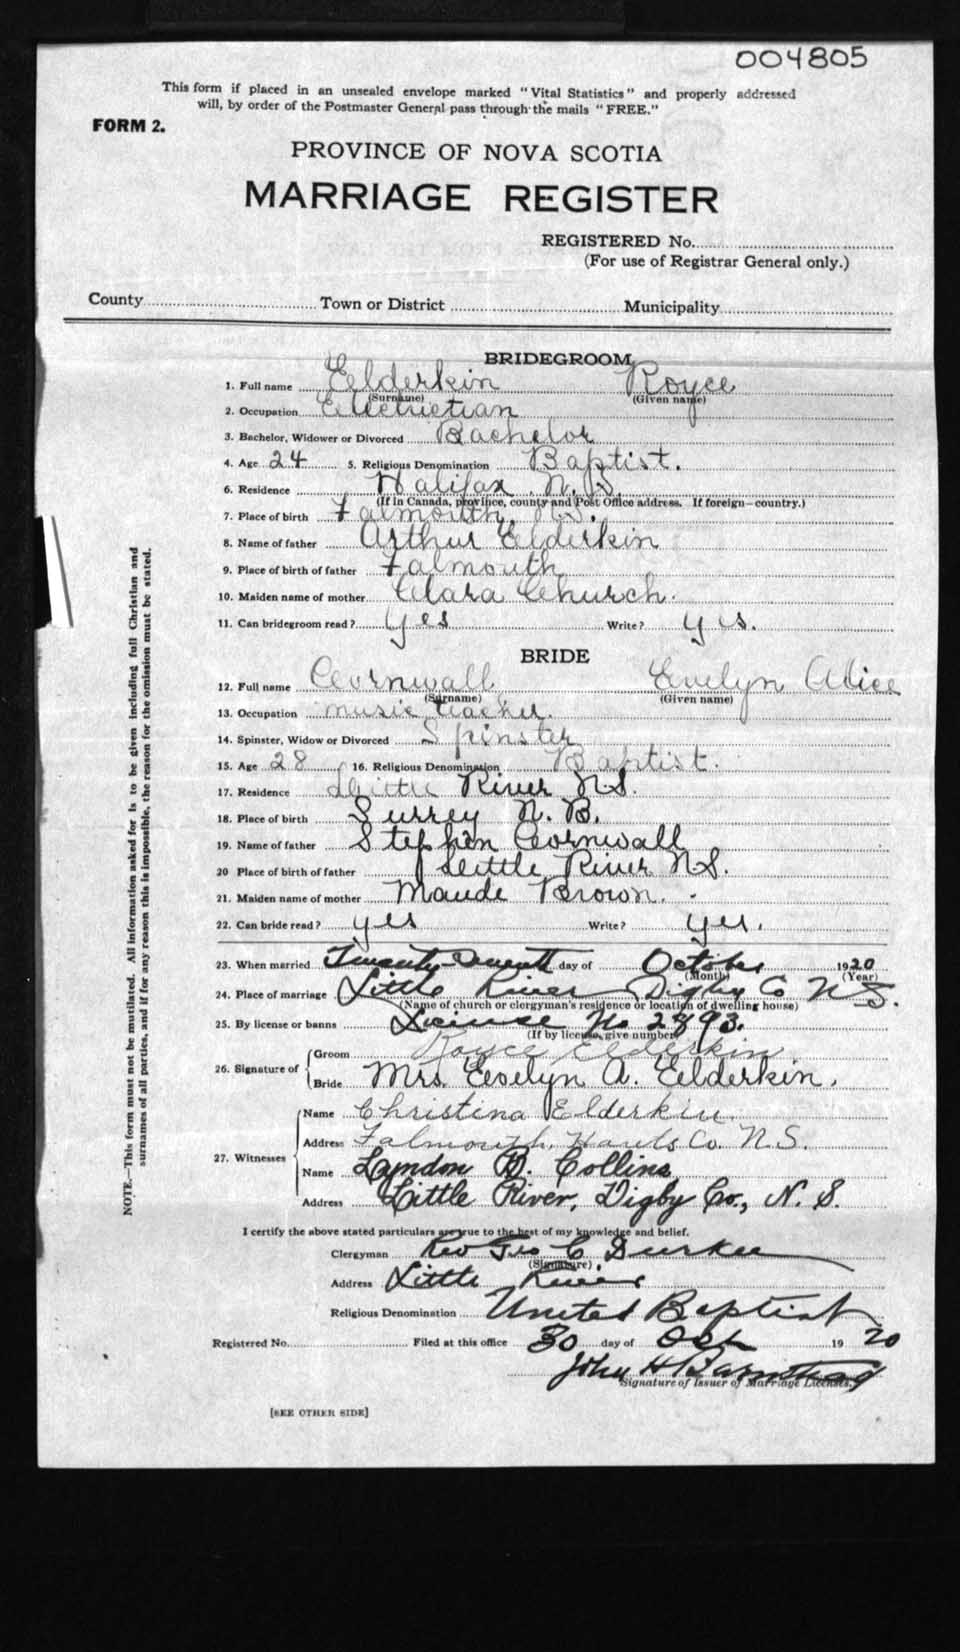 004805
This form if placed in an unsealed envelope marked "Vital Statistics" and properly addressed
will, by order of the Postmaster General pass through the mails "FREE."
FORM 2.
PROVINCE OF NOVA SCOTIA
MARRIAGE REGISTER
REGISTERED No.
(For use of Registrar General only.)
County Town or District Municipality
BRIDEGROOM
1. Full name Elderkin Royce
(Surname) (Given name)
2. Occupation Electrictian
3. Bachelor, Widower or Divorced Bachelor
4. Age 24 5. Religious Denomination Baptist.
6. Residence Halifax N. S.
(If in Canada, province, county and Post Office address. If foreign—country.)
7. Place of birth Falmouth N.S.
8. Name of father Arthur Elderkin
9. Place of birth of father Falmouth
10. Maiden name of mother Clara Church.
11. Can bridegroom read? yes Write? yes.
BRIDE
12. Full name Cornwall Evelyn Alice
(Surname) (Given name)
13. Occupation music teacher.
14. Spinster, Widow or Divorced Spinster
15. Age 28 16. Religious Denomination Baptist.
17. Residence Little River N.S.
18. Place of birth Surrey N. B.
19. Name of father Stephen Cornwall
20 Place of birth of father Little River N.S.
21. Maiden name of mother Maude Brown.
22. Can bride read? yes Write? yes.
23. When married Twenty Seventh day of October 1920
(Month) (Year)
24. Place of marriage Little River Digby Co N.S.
(Name of church or clergyman's residence or location of dwelling house)
25. By license or banns License No 2893.
(If by license, give number)
26. Signature of
Groom Royce Elderkin
Bride Mrs. Evelyn A. Elderkin.
27. Witnesses
Name Christina Elderkin
Address Falmouth, Hants Co. N.S.
Name Lyndon B. Collins
Address Little River, Digby Co., N. S.
I certify the above stated particulars are true to the best of my knowledge and belief.
Clergyman Rev Geo C Durkee
(Signature)
Address Little River
Religious Denomination United Baptist
Registered No. Filed at this office 30 day of Oct 1920
John H
Signature of Issuer of Marriage Licenses.
[SEE OTHER SIDE]
NOTE.—This form must not be mutilated. All information asked for is to be given including full Christian and
surnames of all parties, and if for any reason this is impossible, the reason for the omission must be stated.